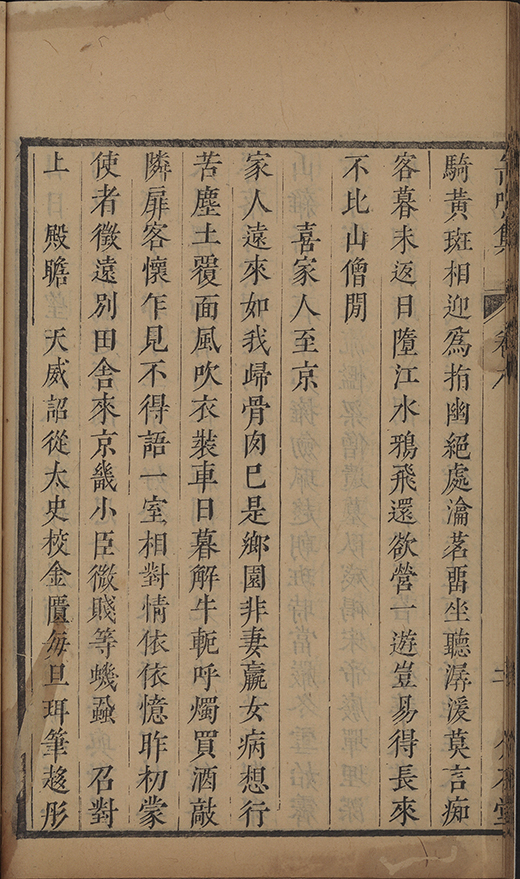 騎黃斑相迎爲指幽絕處瀹茗畱坐聽潺湲莫言痴
客暮未返日墮江水鴉飛還欲營一遊豈易得長來
不比山僧閒
喜家人至京
家人遠來如我歸骨肉已是鄉園非妻羸女病想行
苦塵土覆面風吹衣裝車日暮解牛軛呼燭買酒敲
隣扉客懷乍見不得語一室相對情依依憶昨初蒙
使者徵遠別田舍來京畿小臣微賤等蟣蝨 召對
上 殿瞻 天威詔從太史校金匱每旦珥筆趍彤